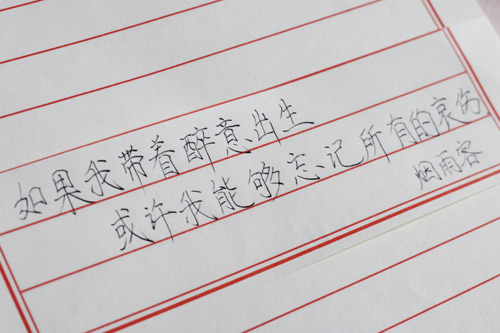 如果我带着醉意出生
或许我能够忘记所有的哀伤
烟雨客